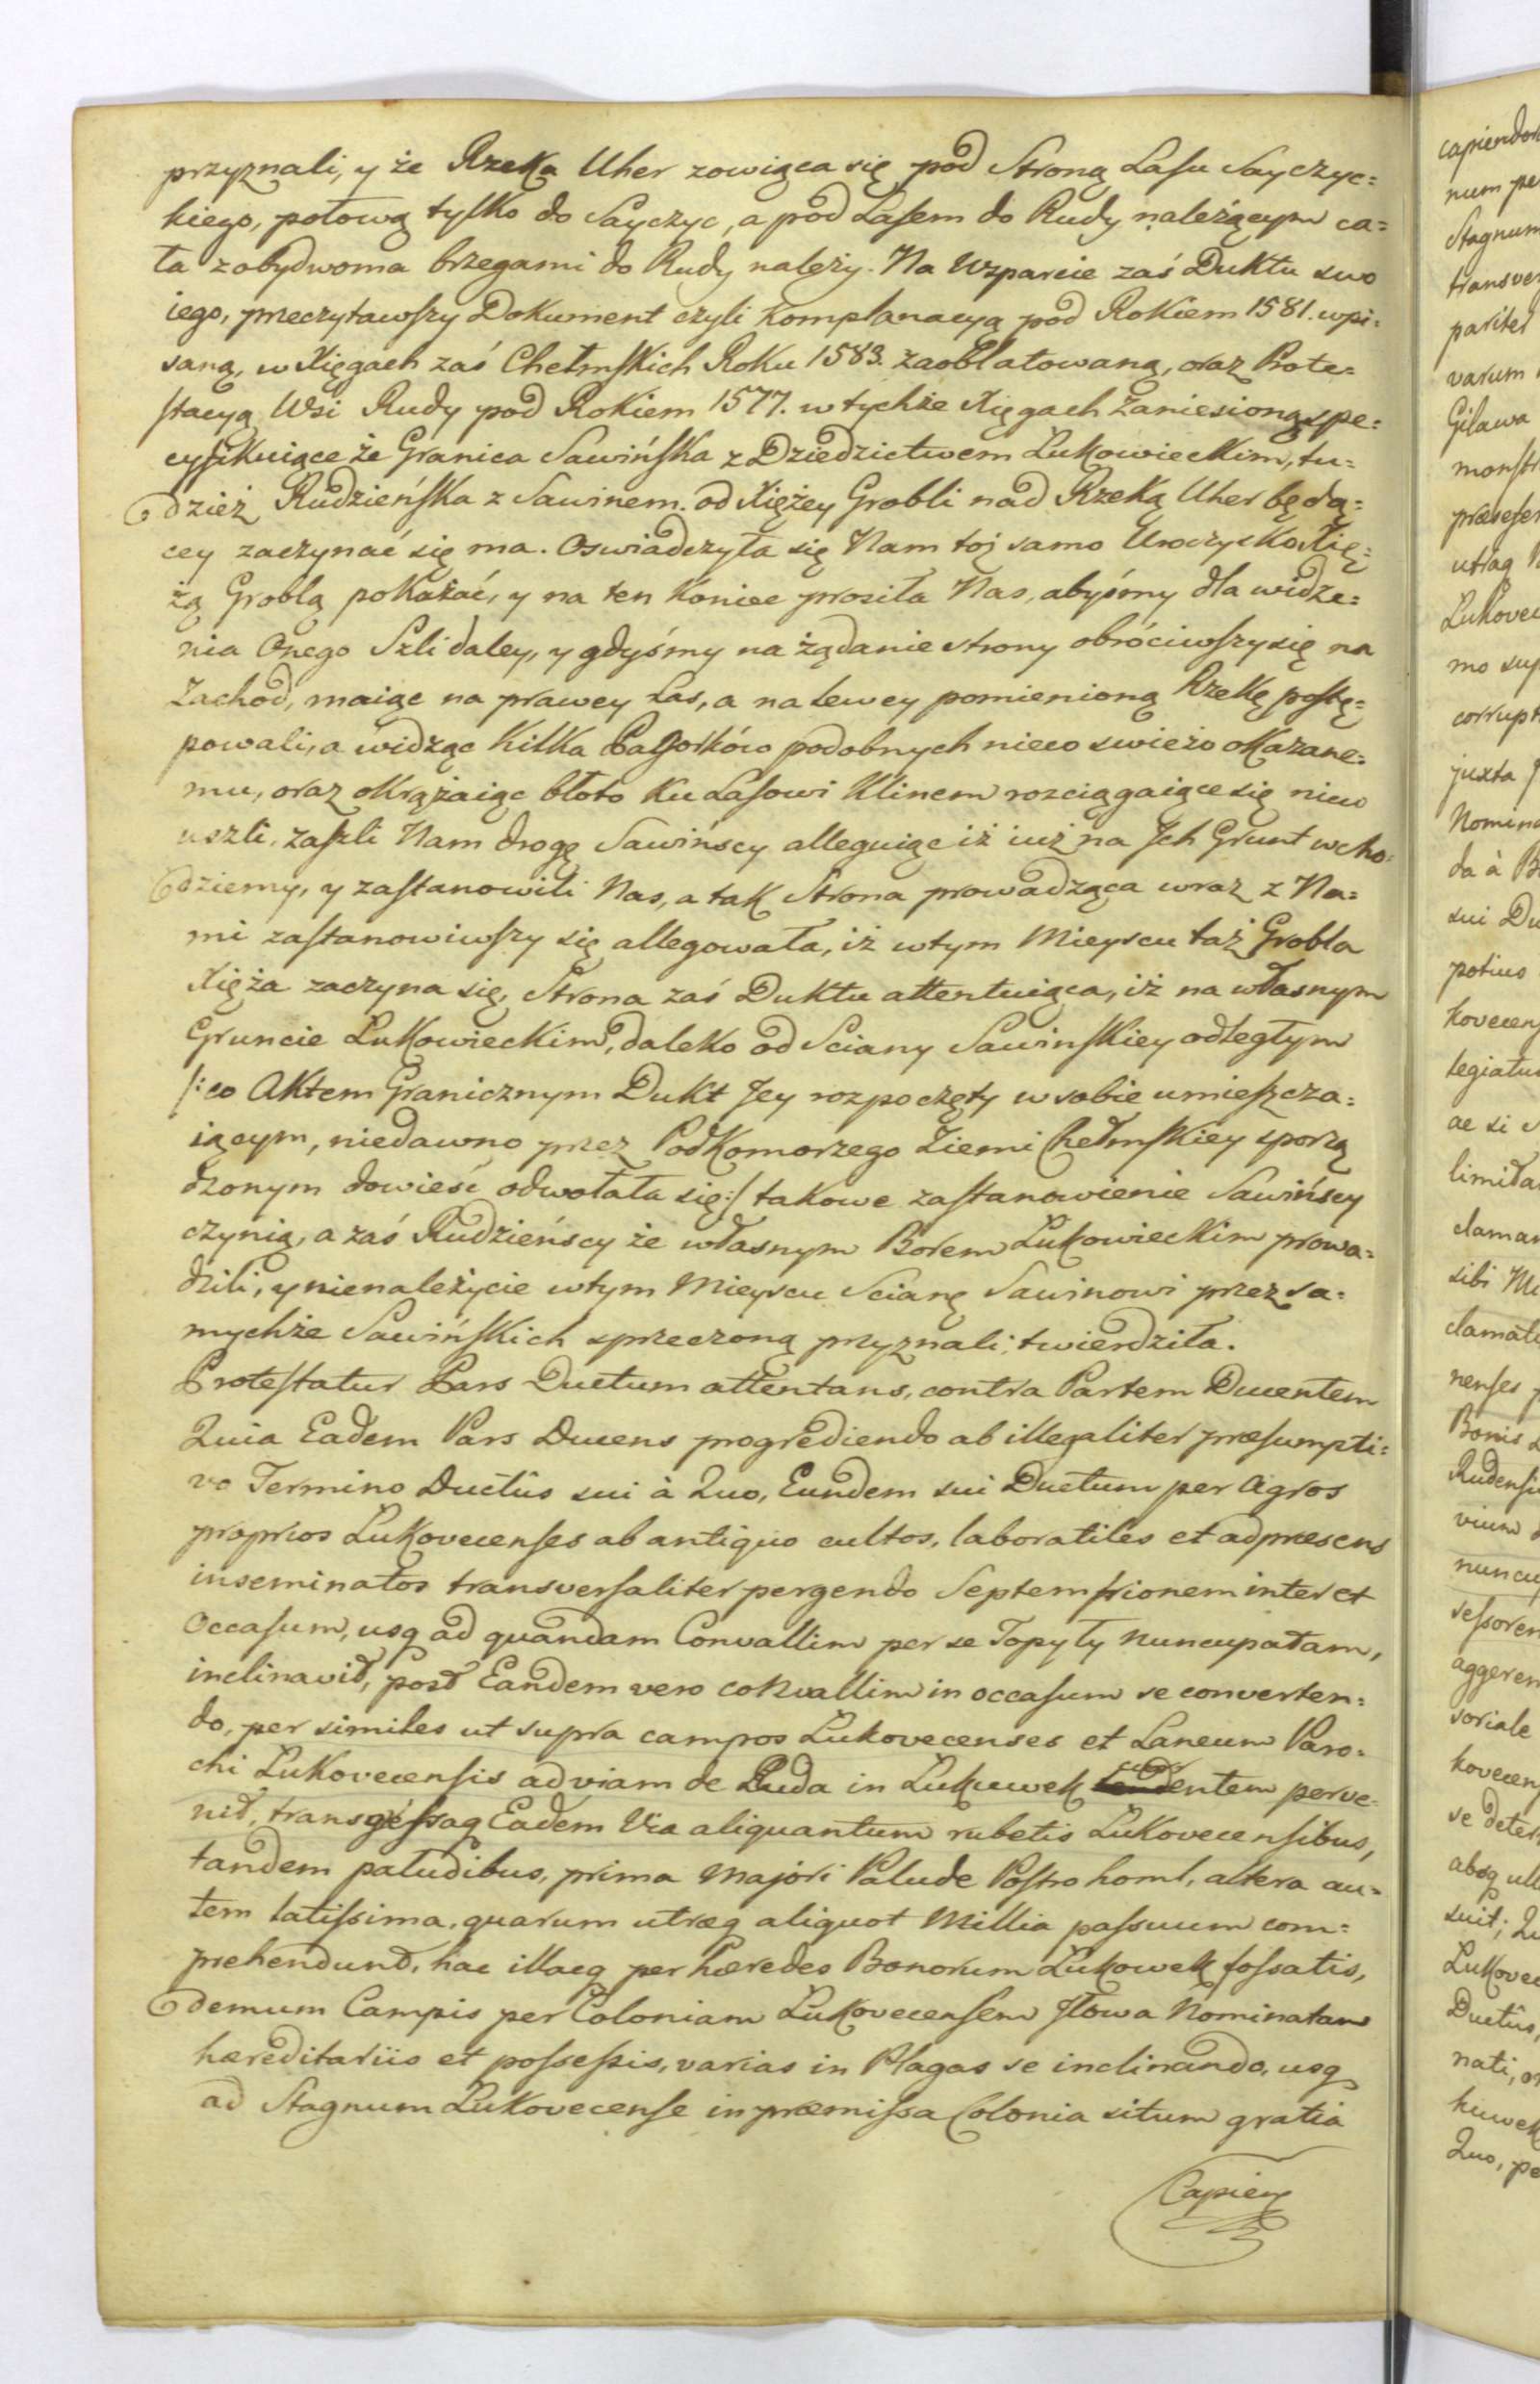 przyznali, y że Rzeka Uher zowiąca się pod Stroną Lasu Sayczyc=
kiego, połową tylko do Sayczyc, a pod Lasem do Rudy należącym ca=
ła z obydwoma brzegami do Rudy należy. Na Wzparcie zaś Duktu swo
iego, przeczytawszy Dokument czyli Komplanacyą pod Rokiem 1581. wpi=
saną, w Xięgach zaś Chełmskich Roku 1583. zaoblatowaną, oraz Prote=
stacyą Wsi Rudy pod Rokiem 1577. w tychże Xięgach zaniesioną spe=
cyfikuiące że Granica Sawińska z Dziedzictwem Łukowieckim, tu=
dzież Rudzieńska z Sawinem. od Xiężey Grobli nad Rzeką Uher będą=
cey zaczynać się ma. Oswiadczyła się Nam toż samo Uroczysko Xię=
żą Groblą pokazać, y na ten koniec prosiła Nas, abyśmy dla widze=
nia Onego Szli daley, y gdyśmy na żądanie strony obróciwszy się na
Zachod, maiąc na prawey Las, a na lewey pomienioną Rzekę postę=
powali, a widząc kilka Pagorków podobnych nieco swieżo okazane=
mu, oraz okrążaiąc błoto ku Lasowi Klinem rozciągaiące się nieco
uszli, zaszli Nam drogę Sawińscy alleguiąc iż iuż na Ich Grunt wcho=
dziemy, y zastanowili Nas, a tak Strona prowadząca wraz z Na=
mi zastanowiwszy się allegowała, iż w tym Mieyscu taż Grobla
Xięża zaczyna się, Strona zaś Duktu attentuiąca, iż na własnym
Gruncie Łukowieckim, daleko od Sciany Sawinskiey odległym
/: co Aktem Granicznym Dukt Jey rozpoczęty w sobie umieszcza=
iącym, niedawno przez Podkomorzego Ziemi Chełmskiey sporzą
dzonym dowieść odwołała się :/ takowe zastanowienie Sawińscy
czynią, a zaś Rudzieńscy że własnym Borem Łukowieckim prowa=
dzili, y nienależycie w tym Mieyscu Scianę Sawinowi przez sa=
mychże Sawińskich sprzeczoną przyznali; twierdziła.
Protestatur Pars Ductum attentans, contra Partem Ducentem
Quia Eadem Pars Ducens progrediendo ab illegaliter præsumpti=
vo Termino Ductûs sui à Quo, Eundem sui Ductum per Agros
proprios Lukovecenses ab antiquo cultos, laboratiles et ad præsens
inseminatos transversaliter pergendo Septemtrionem inter et
Occasum, usq ad quandam Convallim per se Topyły nuncupatam,
inclinavit, post Eandem vero convallim in occasum se converten=
do, per similes ut supra campos Lukovecenses et Laneum Paro=
chi Lukovecensis ad viam de Ruda in Łukuwek entem perve=
nit, Eadem Via aliquantum rubetis Lukovecensibus,
tandem paludibus, prima majori Palude Postrohoml, altera au=
tem latissima, quarum utræq aliquot Millia passuum com=
prehendunt, hac illacq per hæredes Bonorum Łukowek fossatis,
demum Campis per Coloniam Lukovecensem Iłowa Nominatam
hæreditariis et possessis, varias in Plagas se inclinando, usq
ad Stagnum Lukovecense in præmissa Colonia situm gratia
Capien